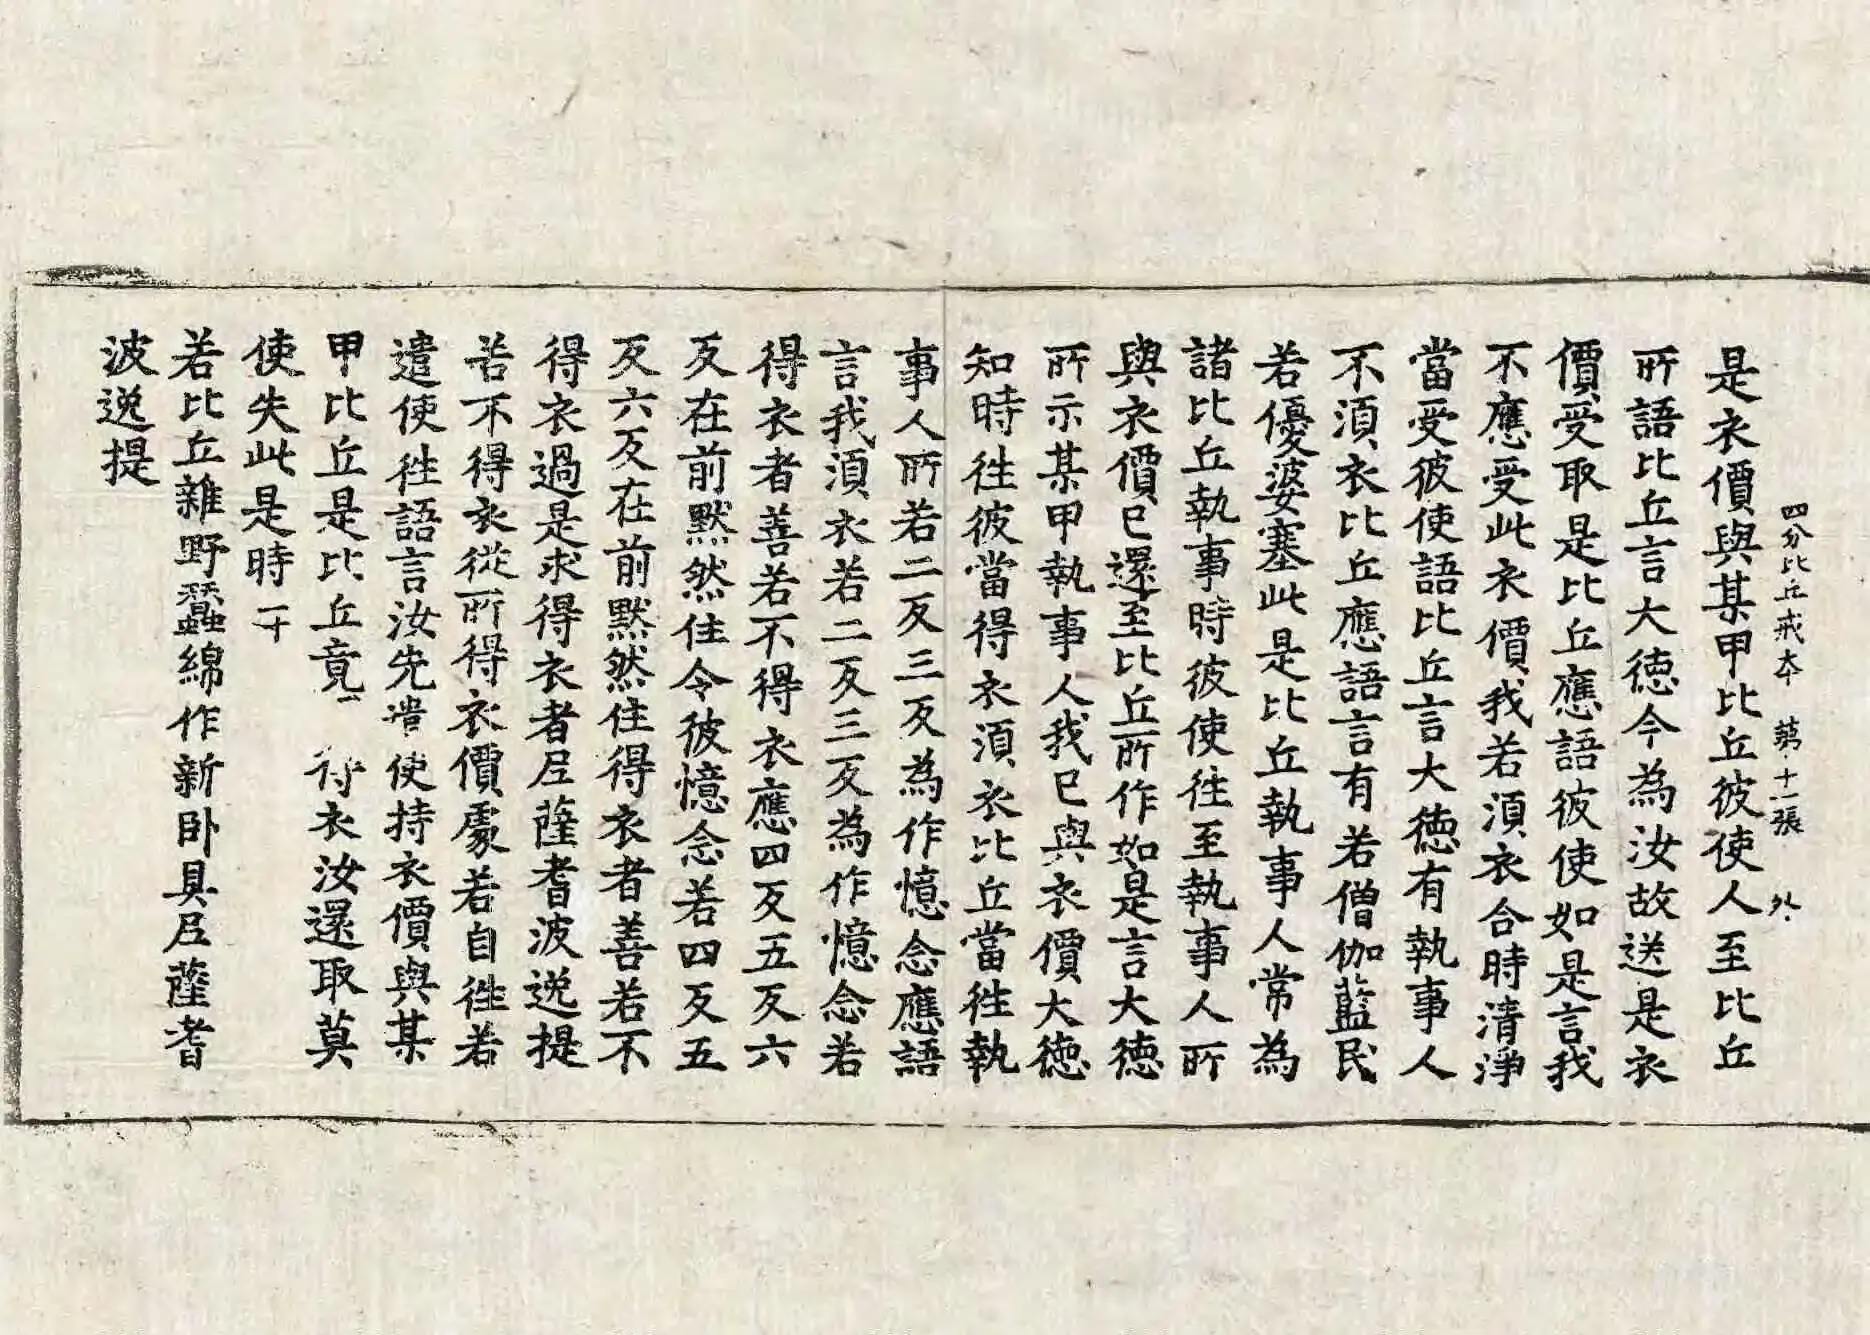 四分比丘戒本 第十一張 外
是衣價與某甲比丘彼使人至比丘
所語比丘言大德今為汝故送是衣
價受取是比丘應語彼使如是言我
不應受此衣價我若須衣合時清淨
當受彼使語比丘言大德有執事人
不須衣比丘應語言有若僧伽藍民
若優婆塞此是比丘執事人常為
諸比丘執事時彼使往至執事人所
與衣價已還至比丘所作如是言大德
所示某甲執事人我已與衣價大德
知時往彼當得衣須衣比丘當往執
事人所若二反三反為作憶念應語
言我須衣若二反三反為作憶念若
得衣者善若不得衣應四反五反六
反在前默然住令彼憶念若四反五
反六反在前默然住得衣者善若不
得衣過是求得衣者尼薩耆波逸提
若不得衣從所得衣價處若自往若
遣使往語言汝先遣使持衣價與某
甲比丘是比丘竟 得衣汝還取莫
使失此是時 十
若比丘雜野蠶綿作新臥具尼薩耆
波逸提